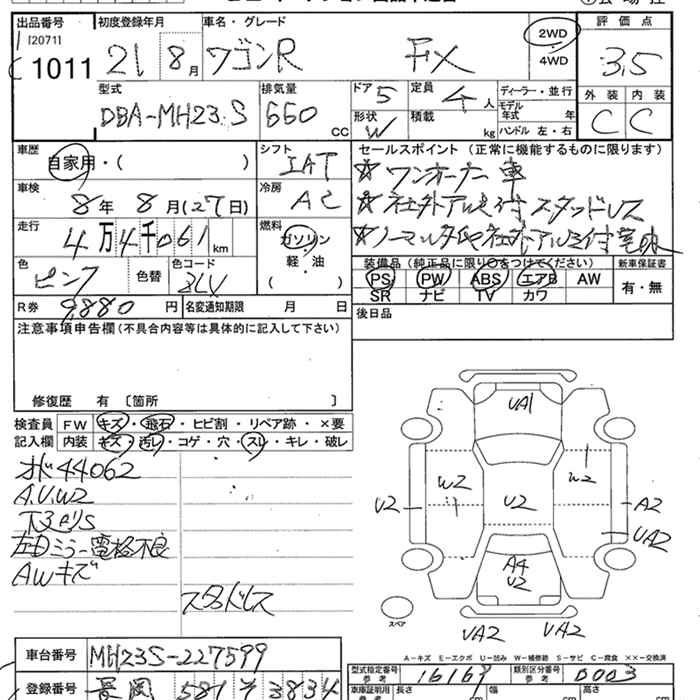 出品番号 [2071] 1011
初度登録年月 21 8月
車名・グレード ワゴンR FX
2WD・4WD
評価点 3.5
外装 C 内装 C
型式 DBA-MH23.S
排気量 660 CC
ドア 5 定員 4人
形状 W 積載 kg
ディーラー・並行
モデル年式 年
ハンドル 左・右
車歴 自家用・( )
シフト IAT
車検 8年 8月(27日)
冷房 AC
走行 4万4千061km
燃料 ガソリン・軽・油 ( )
色 ピンク 色替 色コード
R券 9,880円 名変通知期限 月 日
セールスポイント (正常に機能するものに限ります)
☆ワンオーナー車
☆社外アルミ付 スタッドレス
☆ノーマルタイヤ社外アルミ付
装備品 (純正品に限り○をつけてください) 新車保証書
PS PW ABS エアB AW 有・無
SR ナビ TV カワ
後日品
注意事項申告欄 (不具合内容等は具体的に記入して下さい)
修復歴 有 〔箇所 〕
検査員 FW キズ・飛石・ヒビ割・リペア跡・×要
記入欄 内装 キズ・汚レ・コゲ・穴・スレ・キレ・破レ
44062
A.U.W2
下廻りS
左Dミラー電格不良
AWキズ
スタッドレス
UA1
W2 W2
U2 U2 A2
UA2
A4
U2
スペア
UA2 UA2
A-キズ E-エクボ U-凹み W-補修跡 S-サビ C-腐食 ××-交換済
車台番号 MH23S-227599
型式指定番号 参考 16167 類別区分番号 参考 0003
登録番号 長岡 581 そ 3834
車庫証明用 参考 長さ cm 幅 cm 高さ cm